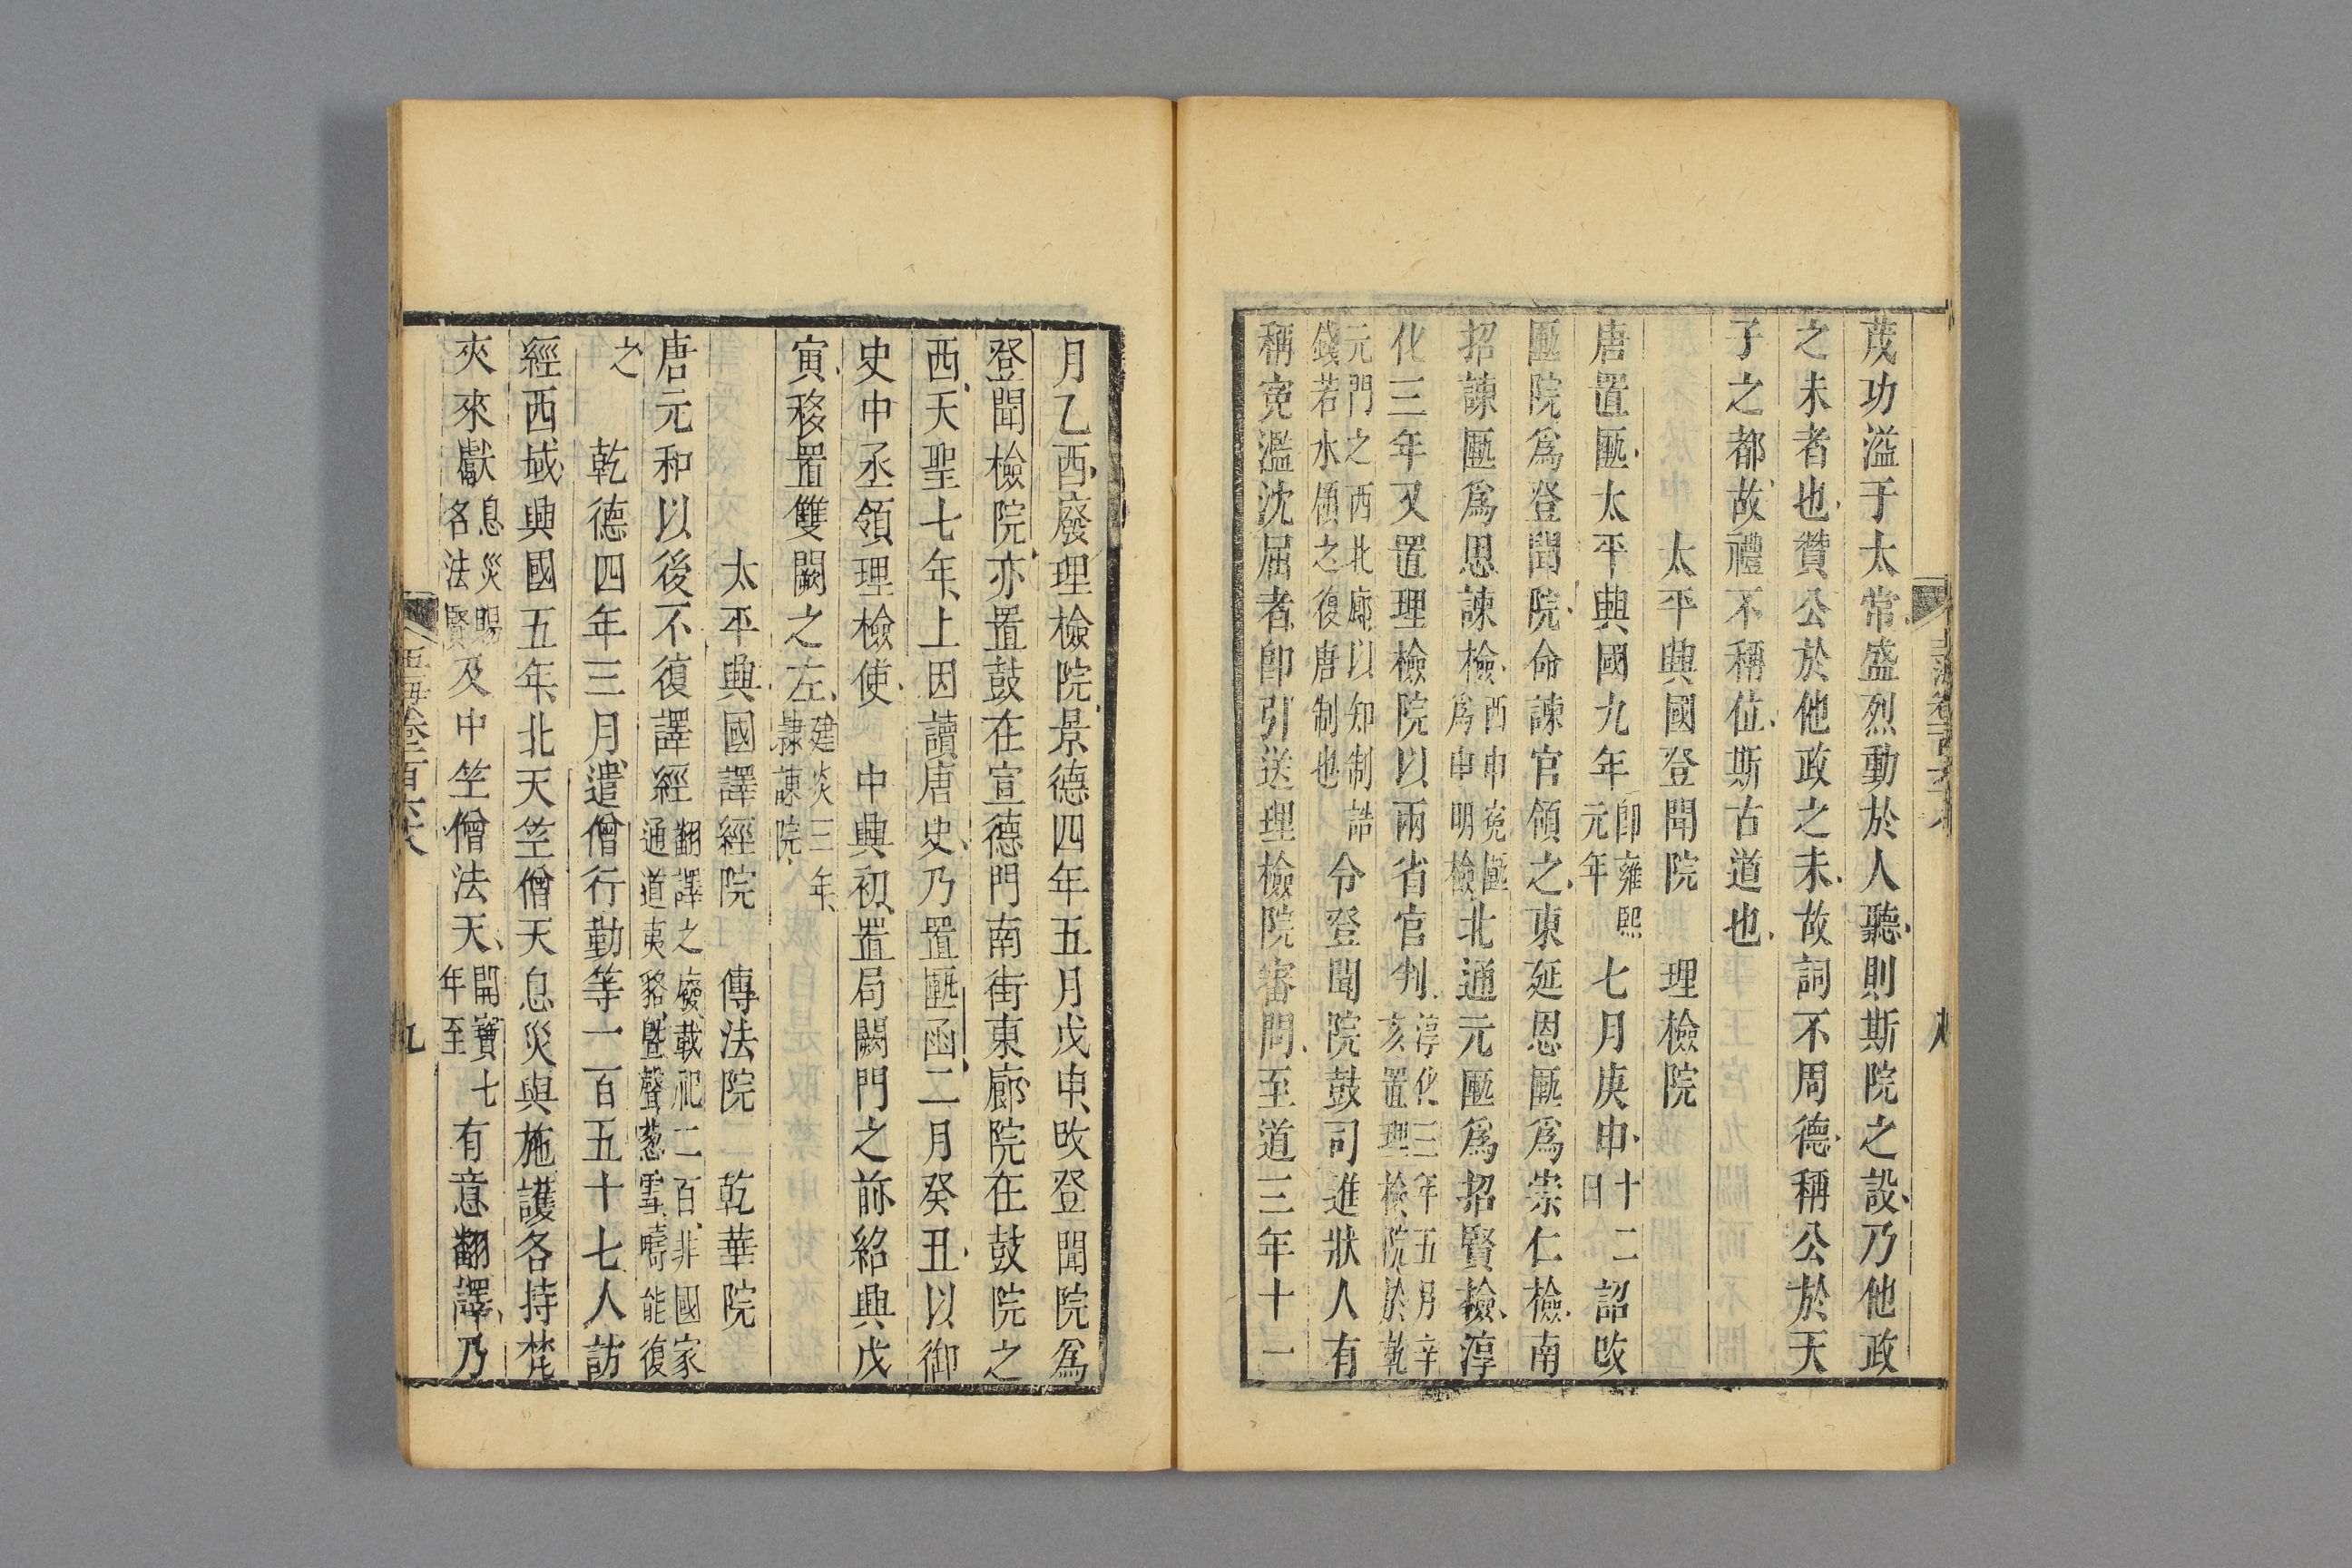 茂功溢于太常盛烈動於人聽則斯院之設乃他政
之未者也贊公於他政之未故詞不周德稱公於天
子之都故禮不稱位斯古道也
太平興國登聞院　理檢院
唐置匭太平興國九年即雍熙元年七月庚申十二日詔改
匭院爲登聞院命諫官領之東延恩匭爲崇仁檢南
招諫匭爲思諫檢西申寃匭爲申明檢北通元匭爲招賢檢淳
化三年又置理檢院以兩省官判淳化三年五月辛亥置理檢院於乾
元門之西北廊以知制誥錢若水領之復唐制也令登聞院鼓司進狀人有
稱寃濫沈屈者卽引送理檢院審問至道三年十一
月乙酉廢理檢院景德四年五月戊申改登聞院爲
登聞檢院亦置鼓在宣德門南街東廊院在鼓院之
西天聖七年上因讀唐史乃置匭函二月癸丑以御
史中丞領理檢使　中興初置局闕門之前紹興戊
寅移置雙闕之左建炎三年隷諫院
太平興國譯經院　傳法院　乾華院
唐元和以後不復譯經翻譯之廢載祀二百非國家通道夷貉曁聲葱雪疇能復
之　乾德四年三月遣僧行勤等一百五十七人訪
經西域興國五年北天竺僧天息災與施護各持梵
夾來獻息災賜名法賢及中竺僧法天開寶七年至有意翻譯乃
玉海卷一百六十八
九